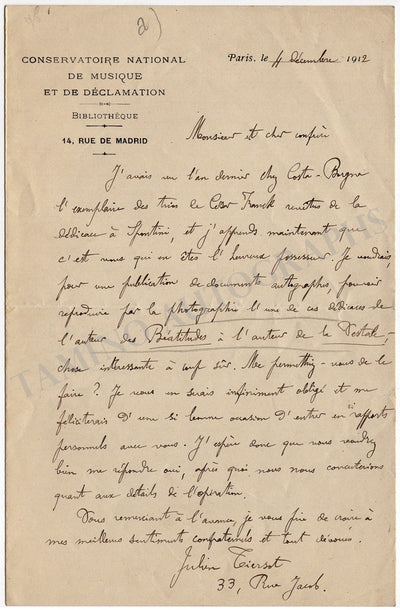 a)
CONSERVATOIRE NATIONAL
DE MUSIQUE
ET DE DÉCLAMATION
BIBLIOTHÈQUE
14, RUE DE MADRID
Paris, le 4 décembre 1912
Monsieur et cher confrère
J'avais vu l'an dernier chez Costa-
l'exemplaire des trios de César Franck revêtus de la
dédicace à Spontini, et j'apprends maintenant que
c'est vous qui en êtes l'heureux possesseur. Je voudrais,
pour une publication de documents autographes, pouvoir
reproduire par la photographie l'une de ces dédicaces de
l'auteur des Béatitudes à l'auteur de la Vestale,
chose intéressante à coup sûr. Me permettriez-vous de le
faire ? Je vous en serais infiniment obligé et me
féliciterais d'une si bonne occasion d'entrer en rapports
personnels avec vous. J'espère donc que vous voudrez
bien me répondre oui, après quoi nous nous concerterions
quant aux détails de l'opération.
Vous remerciant à l'avance, je vous prie de croire à
mes meilleurs sentiments confraternels et tout dévoués.
Julien Tiersot
33, Rue Jacob.
TAMINO AUTOGRAPHS